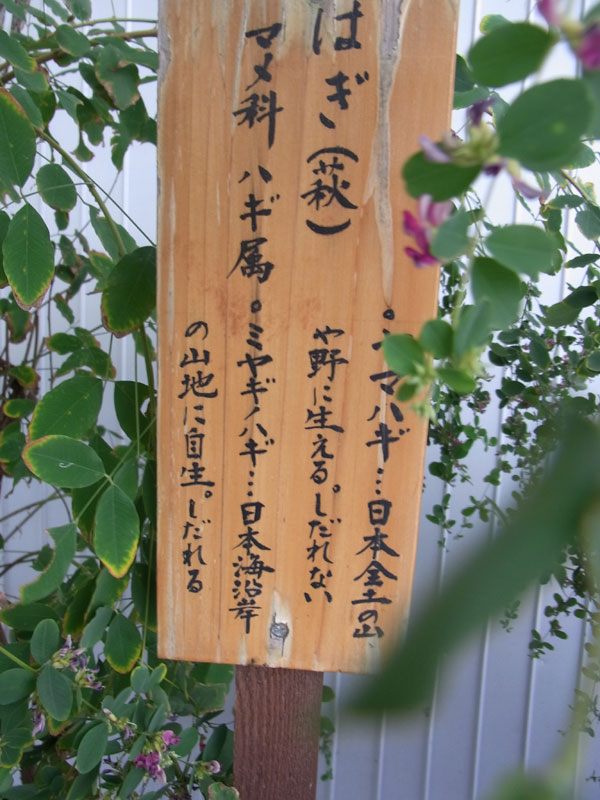 はぎ(萩)
マメ科 ハギ属
。ヤマハギ…日本全土の山
や野に生える。しだれない
。ミヤギノハギ…日本海沿岸
の山地に自生。しだれる